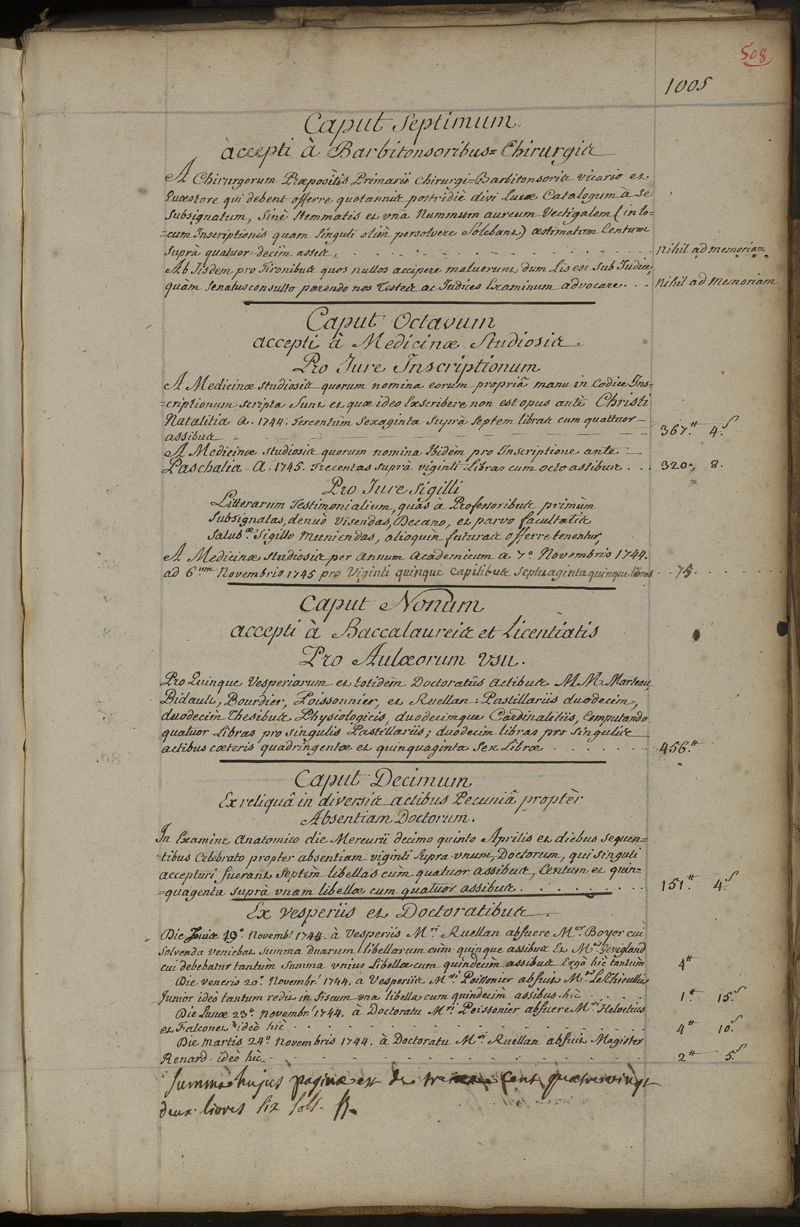 508
1005
Caput Septimum.
accepti à Barbitonsoribus=Chirurgis
A Chirurgorum Præpositis Primarii Chirurgi=Barbitonsoris vicario et
Quæstore qui debent offerre quotannis postridiè divi Lucæ Catalogum à se
Subsignatum, Sinè Stemmatis et vnà Nummum aureum Vectigalem (in lo=
=cum Inscriptionis quam Singuli olim persolvere Solebant) æstimatum Centum
Suprà quatuor decim asseis, . . . . . . nihil ad memoriam
Ab Iisdem pro Tironibus quos nullos accipere maluerunt dum Lis est Sub Judice,
quàm Senatusconsulto parendo nos Testes ac Judices Examinum advocare. . . nihil ad Memoriam
Caput Octavum
accepti à Medicinæ Studiosis.
Pro Jure Inscriptionum
A Medicinæ Studiosis quorum nomina eorum propriâ manu in Codice Ins=
=criptionum scripta Sunt et quæ ideo Exscribere non est opus antè Christi
Natalitia A. 1744. Tercentum Sexaginta Suprà Septem libras cum quattuor
assibus 367.tt 4.s
A Medicinæ Studiosis quorum nomina Ibidem pro Inscriptione ante
Paschalia A. 1745. Trecentas suprà viginti Libras cum octo assibus . . . 320. 8.
Pro Jure Sigilli
Litterarum Testimonialium, quas à Professoribus primùm
Subsignatas, denuò visendas, Decano, et parvo facultatis
Salub.æ Sigillo muniendas, alioquin futuras offerre tenentur,
A Medicinæ Studiosis per Annum Academicum a 7.o Novembris 1744.
ad 6.um Novembris 1745 pro Viginti quinque Capitibus Septuaginta quinque libras . . 75.
Caput Nonum
accepti à Baccalaureis et Licentiatis
Pro Aulæorum vsu.
Pro Quinque Vesperiarum et totidem Doctoratus actibus M.M. Marteau,
Bidault, Bourdier, Poissonnier, et Ruellan: Pastillariis duodecim,
duodecim Thesibus Physiologicis, duodecimque Cardinalitiis, Computando
quatuor Libras pro singulis Pastillariis; duodecim libras pro Singulis
actibus cæteris quadringentæ et quinquaginta Sex Libræ . . . . . . 456.tt
Caput Decimum
Ex reliquâ in diversis actibus Pecuniâ proptèr
Absentiam Doctorum.
In Examine Anatomico die Mercurii decimo quinto Aprilis et diebus Sequen=
=tibus Celebrato propter absentiam viginti Supra vnum, Doctorum, qui Singuli
accepturi fuerant Septem libellas cum quatuor assibus, Centum et quin=
=quagenta suprà vnam libellæ cum quatuor assibus. . . . . . . . 151.tt 4.s
Ex Vesperiis et Doctoratibus.
Die Jovis 19.o Novemb.r 1744. à Vesperiis M.ri Ruellan abfuere M.er Boyer cui
Solvenda veniebat Summa duarum libellarum cùm quinque assibus Et M.er
cui debebatur tantum Summa vnius Libellæ cum quindecim assibus Ergo hîc tantum 4.tt
Die veneris 20.o Novembr.i 1744. a Vesperiis M.ri Poissonier abfuit M.er Le Thieullier
Junior ideò tantum rediit in fiscum vna libella cum quindecim assibus hîc . . . . 1.tt 15.s
Die Lunæ 23.o Novembr.i 1744. à Doctoratu M.ri Poissonier abfuere M.ri Helvetius
et Falconet ideò hîc . . . . . . . . 4.tt 10.s
Die Martis 24.o Novembris 1744. à Doctoratu M.ri Ruellan abfuit Magister
Renard ideò hîc . . . . . . . . 2.tt 5.s
Summa hujus paginæ est de cent quatrevingt
deux livres six sols.